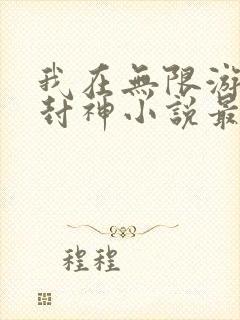 我在無限游
封神小説最
程程